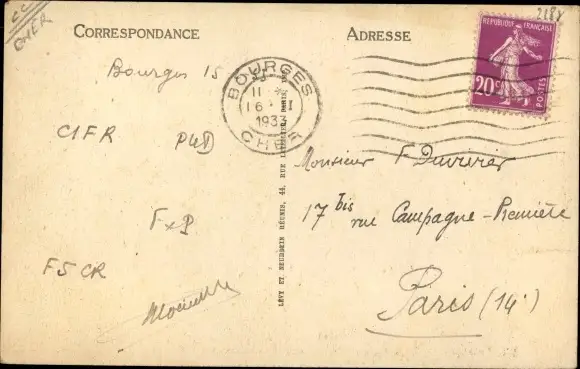 CC
CHER
2188
CORRESPONDANCE
ADRESSE
RÉPUBLIQUE FRANÇAISE
20c
POSTES
BOURGES
11
16
1933
CHER
Bourges 15
C1FR P4D
FxP
F5CR
LÉVY ET NEURDEIN RÉUNIS, 44, RUE LETELLIER, PARIS
Monsieur F Duvivier
17 bis rue Campagne-Première
Paris (14e)